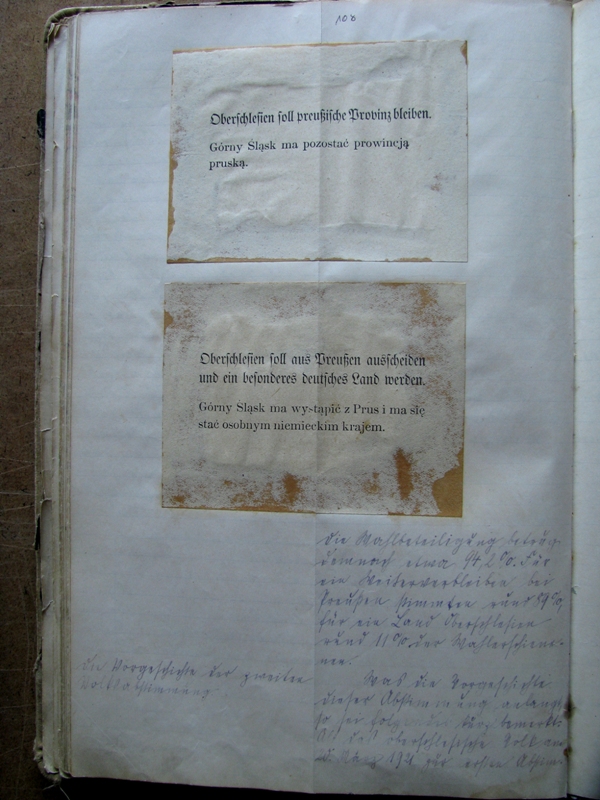 108
Oberschlesien soll preußische Provinz bleiben.
Górny Śląsk ma pozostać prowincją
pruską.
Oberschlesien soll aus Preußen ausscheiden
und ein besonderes deutsches Land werden.
Górny Śląsk ma wystąpić z Prus i ma się
stać osobnym niemieckim krajem.
Die Wahlbeteiligung betrug
demnach etwa 94,2 %. Für
ein Weiterverbleiben bei
Preußen stimmten rund 89 %,
für ein Land Oberschlesien
rund 11 % der Wahlerschiene-
nen.
Die Vorgeschichte der zweiten
Volksabstimmung
Was die Vorgeschichte
dieser Abstimmung anlangt,
so sei folgendes kurz bemerkt:
Als das oberschlesische Volk am
20. März 1921 zur ersten